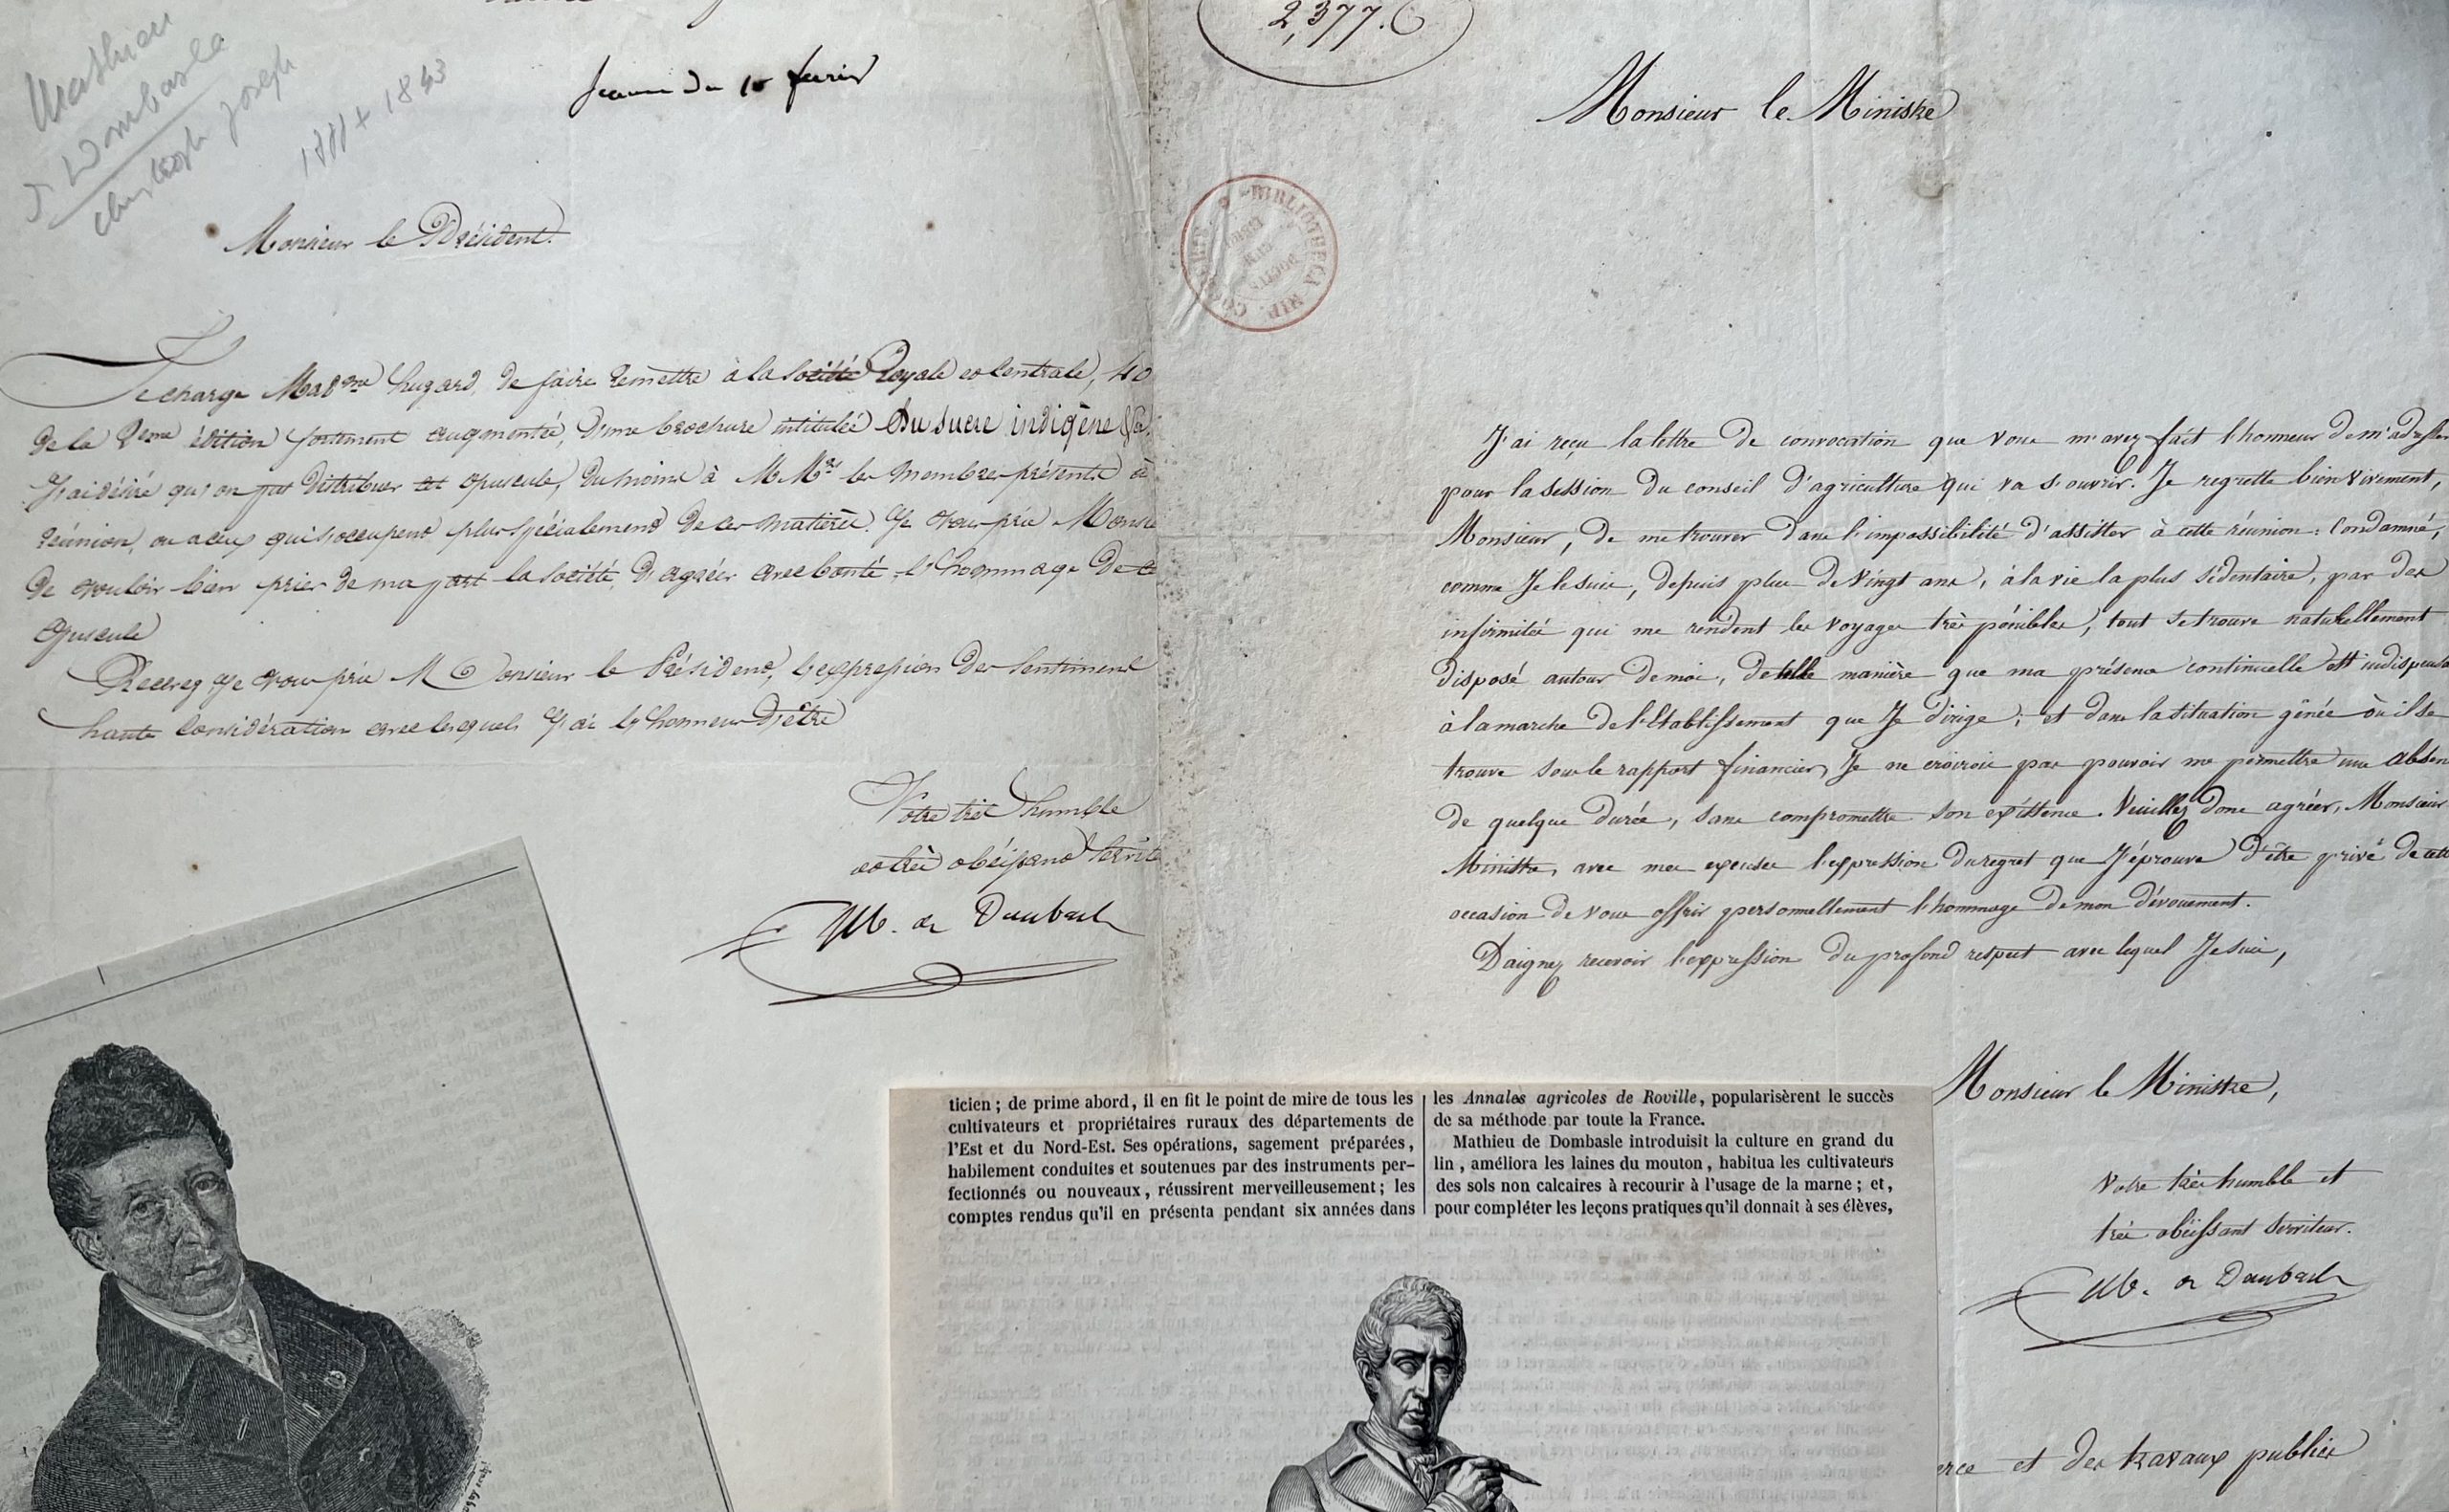 Mathieu
d Dombasle
Christoph Joseph
1777 + 1843
Monsieur le Président.
Je charge Mad.me huzard, de faire remettre à la Société Royale et Centrale, 40
de la 2eme édition fortement augmentée, d'une brochure intitulée Du sucre indigène &a.
J'ai désiré qu'on put distribuer cet opuscule, du moins à M.Mrs les membres présents à
réunion, ou à ceux qui s'occupent plus spécialement de ces matières. Je vous prie Monsie
de vouloir bien prier de ma part la société, d'agréer avec bonté l'hommage de ce
opuscule
Recevez, Je vous prie Monsieur le Président, l'expression des sentiments
haute considération avec lesquels J'ai l'honneur d'être
Votre très humble
et très obéissant servite
M. de Dombasle
2,377. C
Monsieur le Ministre
BIBLIOTHECA
J'ai reçu la lettre de convocation que vous m'avez fait l'honneur de m'adresser
pour la session du conseil d'agriculture qui va s'ouvrir. Je regrette bien vivement,
Monsieur, de me trouver dans l'impossibilité d'assister à cette réunion: Condamné,
comme Je le suis, depuis plus de vingt ans, à la vie la plus sédentaire, par des
infirmités qui me rendent les voyages très pénibles, tout se trouve naturellement
disposé autour de moi, de telle manière que ma présence continuelle est indispensa
à la marche de l'Etablissement que Je dirige; et dans la situation gênée où il se
trouve sous le rapport financier, Je ne croirois pas pouvoir me permettre une absen
de quelque durée, sans compromettre son existence. Veuillez donc agréer, Monsieur
Ministre, avec mes excuses l'expression du regret que J'éprouve d'être privé de cette
occasion de vous offrir personnellement l'hommage de mon dévouement.
Daignez recevoir l'expression du profond respect avec lequel Je suis,
Monsieur le Ministre,
Votre très humble et
très obéissant serviteur.
M. de Dombasle
erce et des travaux publics
ticien ; de prime abord, il en fit le point de mire de tous les
cultivateurs et propriétaires ruraux des départements de
l'Est et du Nord-Est. Ses opérations, sagement préparées,
habilement conduites et soutenues par des instruments per-
fectionnés ou nouveaux, réussirent merveilleusement ; les
comptes rendus qu'il en présenta pendant six années dans
les Annales agricoles de Roville, popularisèrent le succès
de sa méthode par toute la France.
Mathieu de Dombasle introduisit la culture en grand du
lin, améliora les laines du mouton, habitua les cultivateurs
des sols non calcaires à recourir à l'usage de la marne ; et,
pour compléter les leçons pratiques qu'il donnait à ses élèves,